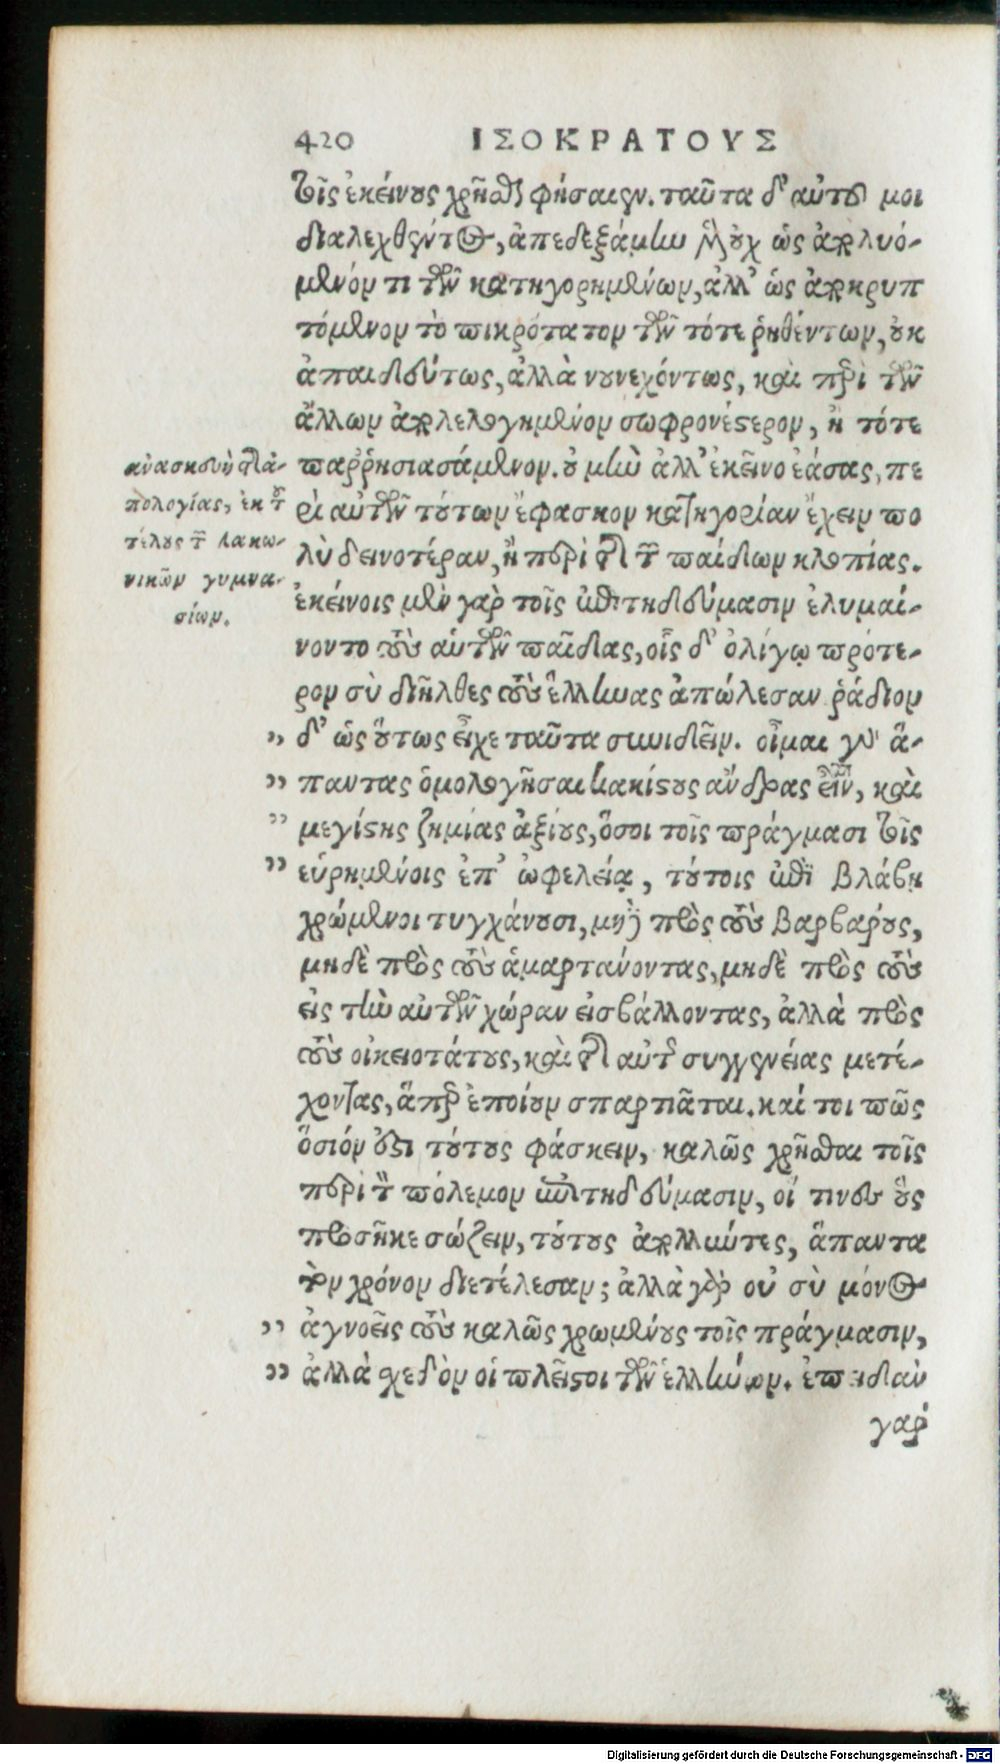 420 ΙΣΟΚΡΑΤΟΥΣ
τοῖς ἐκείνους χρῆσθαι φήσαιεν. ταῦτα δ' αὐτοῦ μοι
διαλεχθέντος, ἀπεδεξάμην μὲν οὐχ ὡς ἀπολυό-
μενόν τι τῶν κατηγορημένων, ἀλλ' ὡς ἀποκρυπ
τόμενον τὸ πικρότατον τῶν τότε ῥηθέντων, οὐκ
ἀπαιδεύτως, ἀλλὰ νουνεχόντως, καὶ περὶ τῶν
ἄλλων ἀπολελογημένον σωφρονέστερον, ἢ τότε
παῤῥησιασάμενον. οὐ μὴν ἀλλ' ἐκεῖνο ἐάσας, πε
ρὶ αὐτῶν τούτων ἔφασκον κατηγορίαν ἔχειν πο
λὺ δεινοτέραν, ἢ περὶ τῆς τῶν παίδων κλοπίας.
ἐκείνοις μὲν γὰρ τοῖς ἐπιτηδεύμασιν ἐλυμαί-
νοντο τοὺς αὑτῶν παῖδας, οἷς δ' ὀλίγῳ πρότε-
ρον σὺ διῆλθες τοὺς ἕλληνας ἀπώλεσαν ῥάδιον
„ δ' ὡς οὕτως εἶχε ταῦτα συνιδεῖν. οἶμαι γὰρ ἅ-
„ παντας ὁμολογῆσαι κακίστους ἄνδρας εἶναι, καὶ
„ μεγίστης ζημίας ἀξίους, ὅσοι τοῖς πράγμασι τοῖς
„ εὑρημένοις ἐπ' ὠφελείᾳ, τούτοις ἐπὶ βλάβῃ
χρώμενοι τυγχάνουσι, μὴ πρὸς τοὺς βαρβάρους,
μηδὲ πρὸς τοὺς ἁμαρτάνοντας, μηδὲ πρὸς τοὺς
εἰς τὴν αὐτῶν χώραν εἰσβάλλοντας, ἀλλὰ πρὸς
τοὺς οἰκειοτάτους, καὶ τῆς αὐτῆς συγγενείας μετέ-
χοντας, ἅπερ ἐποίουν σπαρτιᾶται. καί τοι πῶς
ὅσιόν ἐστι τούτους φάσκειν, καλῶς χρῆσθαι τοῖς
περὶ τὸν πόλεμον ἐπιτηδεύμασιν, οἵ τινες οὓς
προσῆκε σώζειν, τούτους ἀπολλύντες, ἅπαντα
τὸν χρόνον διετέλεσαν; ἀλλὰ γὰρ οὐ σὺ μόνος
„ ἀγνοεῖς τοὺς καλῶς χρωμένους τοῖς πράγμασιν,
„ ἀλλὰ σχεδὸν οἱ πλεῖστοι τῶν ἑλλήνων. ἐπειδὰν
γὰρ
ἀνασκευὴ τῆς ἀ-
πολογίας, ἐκ τοῦ
τέλους τῶν λακω-
νικῶν γυμνα-
σίων.
Digitalisierung gefördert durch die Deutsche Forschungsgemeinschaft - DFG